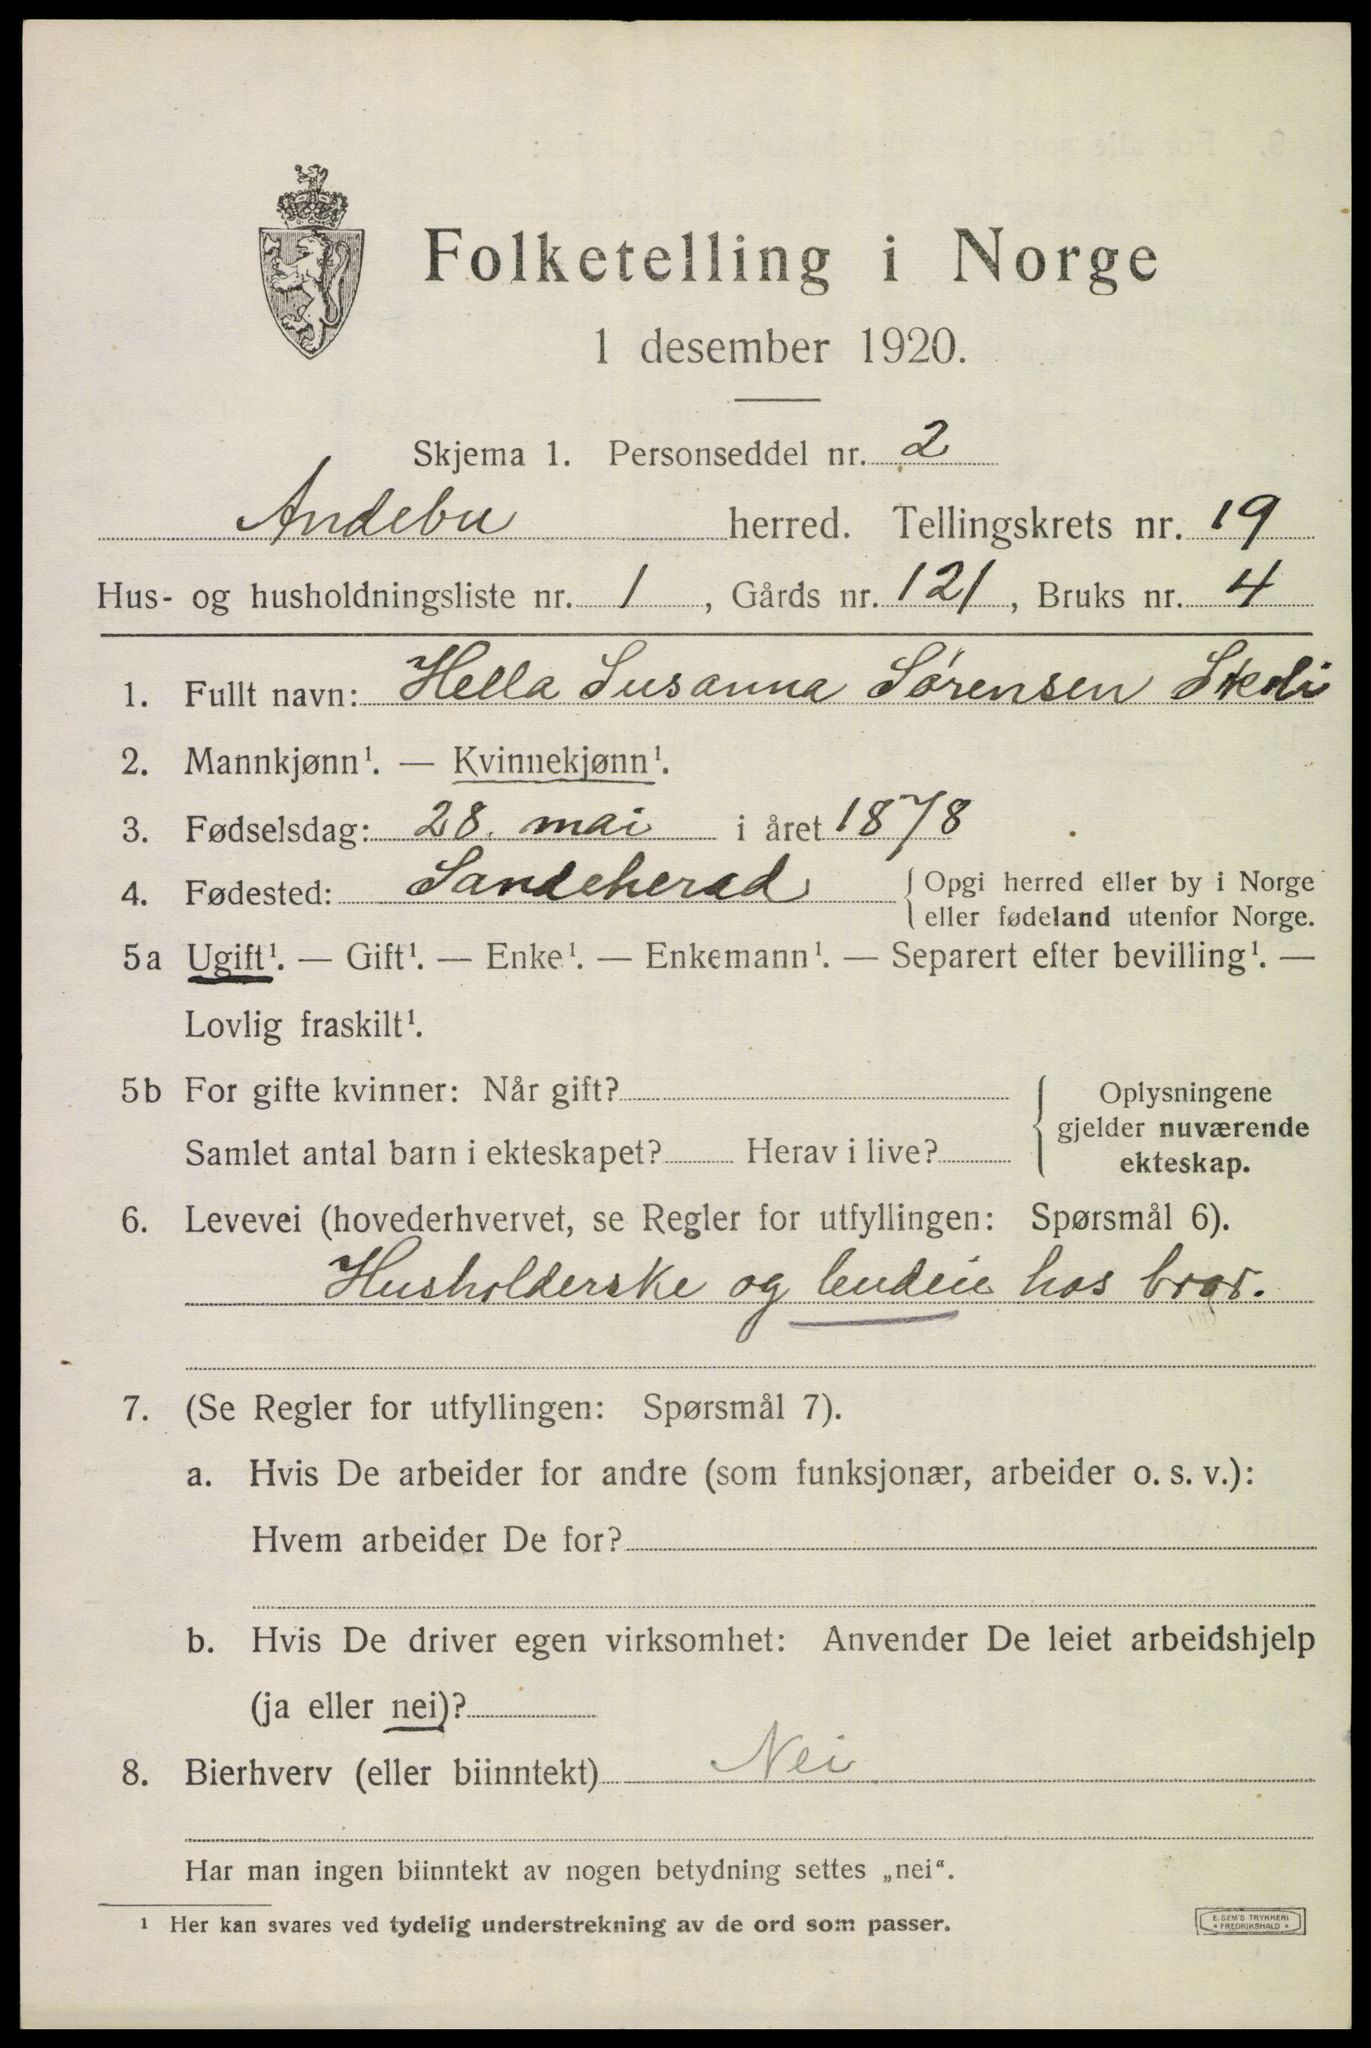 Folketelling i Norge
1 desember 1920.
Skjema 1. Personseddel nr. 2
Andebu herred. Tellingskrets nr. 19
Hus- og husholdningsliste nr. 1, Gårds nr. 121, Bruks nr. 4
1. Fullt navn: Hella Susanna Sørensen
2. Mannkjønn¹. — Kvinnekjønn¹.
3. Fødselsdag: 28. mai i året 1878
4. Fødested: Sandeherad { Opgi herred eller by i Norge
eller fødeland utenfor Norge.
5a Ugift¹. — Gift¹. — Enke¹. — Enkemann¹. — Separert efter bevilling¹. —
Lovlig fraskilt¹.
5b For gifte kvinner: Når gift? { Oplysningene
gjelder nuværende
Samlet antal barn i ekteskapet? Herav i live?
ekteskap.
6. Levevei (hovederhvervet, se Regler for utfyllingen: Spørsmål 6).
Husholderske og budeie hos bror.
7. (Se Regler for utfyllingen: Spørsmål 7).
a. Hvis De arbeider for andre (som funksjonær, arbeider o. s. v.):
Hvem arbeider De for?
b. Hvis De driver egen virksomhet: Anvender De leiet arbeidshjelp
(ja eller nei)?
8. Bierhverv (eller biinntekt) Nei
Har man ingen biinntekt av nogen betydning settes „nei“.
¹ Her kan svares ved tydelig understrekning av de ord som passer.
E. SEM'S TRYKKERI
* FREDRIKSHALD *